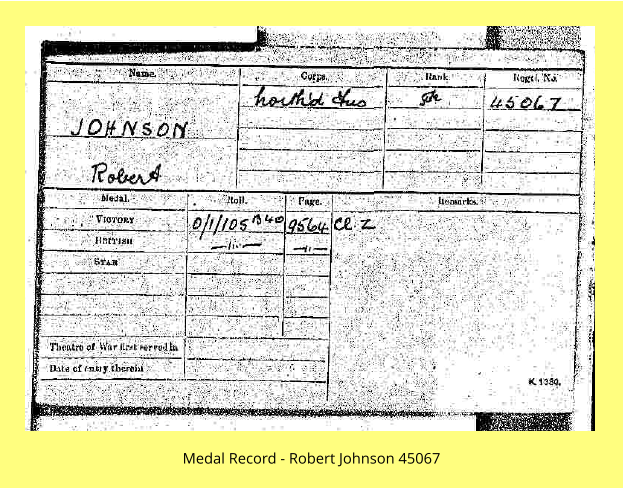 Name. Corps. Rank. Regtl. No.
North'd Fus Pte 45067
JOHNSON
Robert
Medal. Roll. Page. Remarks.
VICTORY O/1/105 B40 9564 Cl. Z
BRITISH —"— —"—
STAR
Theatre of War first served in
Date of entry therein
K. 1380.
Medal Record - Robert Johnson 45067